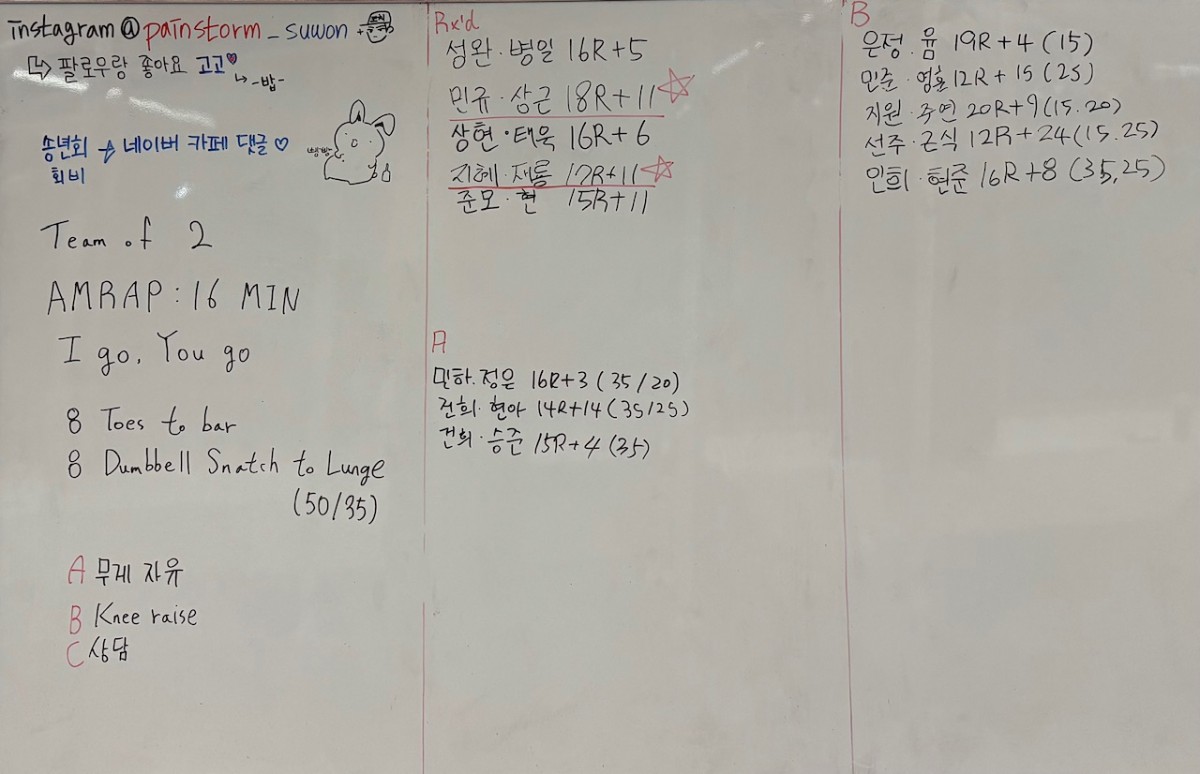 instagram@painstorm_suwon
↳ 팔로우랑 좋아요 고고♥
↳ -밥-
송년회 → 네이버 카페 댓글 ♡
회비
빵빵
Team of 2
AMRAP : 16 MIN
I go, You go
8 Toes to bar
8 Dumbbell Snatch to Lunge
(50/35)
A 무게 자유
B Knee raise
C 상담
Rx'd
성완·병일 16R+5
민규·상근 18R+11 ☆
상현·태욱 16R+6
지혜·재룡 17R+11 ☆
준모·현 15R+11
A
민하.정은 16R+3 (35/20)
건희·현아 14R+14 (35/25)
건희·승준 15R+4 (35)
B
은정.윰 19R+4 (15)
민준·영훈 12R+15 (25)
지원·주연 20R+9 (15.20)
선주·근식 12R+24 (15.25)
인희·현준 16R+8 (35,25)